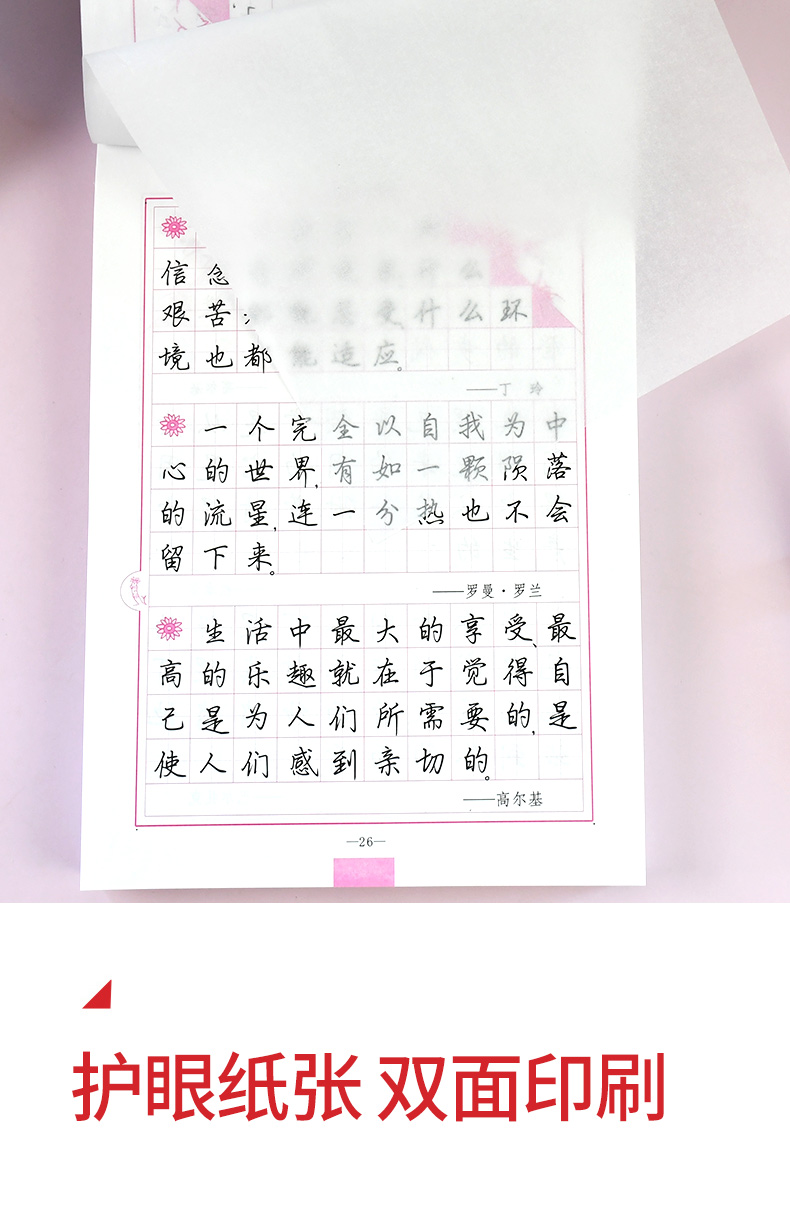 信念 什么
艰苦 都能忍受,什么环
境也都能适应。
——丁 玲
一个完全以自我为中
心的世界,有如一颗陨落
的流星,连一分热也不会
留下来。
——罗曼·罗兰
生活中最大的享受、最
高的乐趣就在于觉得自
己是为人们所需要的,是
使人们感到亲切的。
——高尔基
—26—
护眼纸张 双面印刷